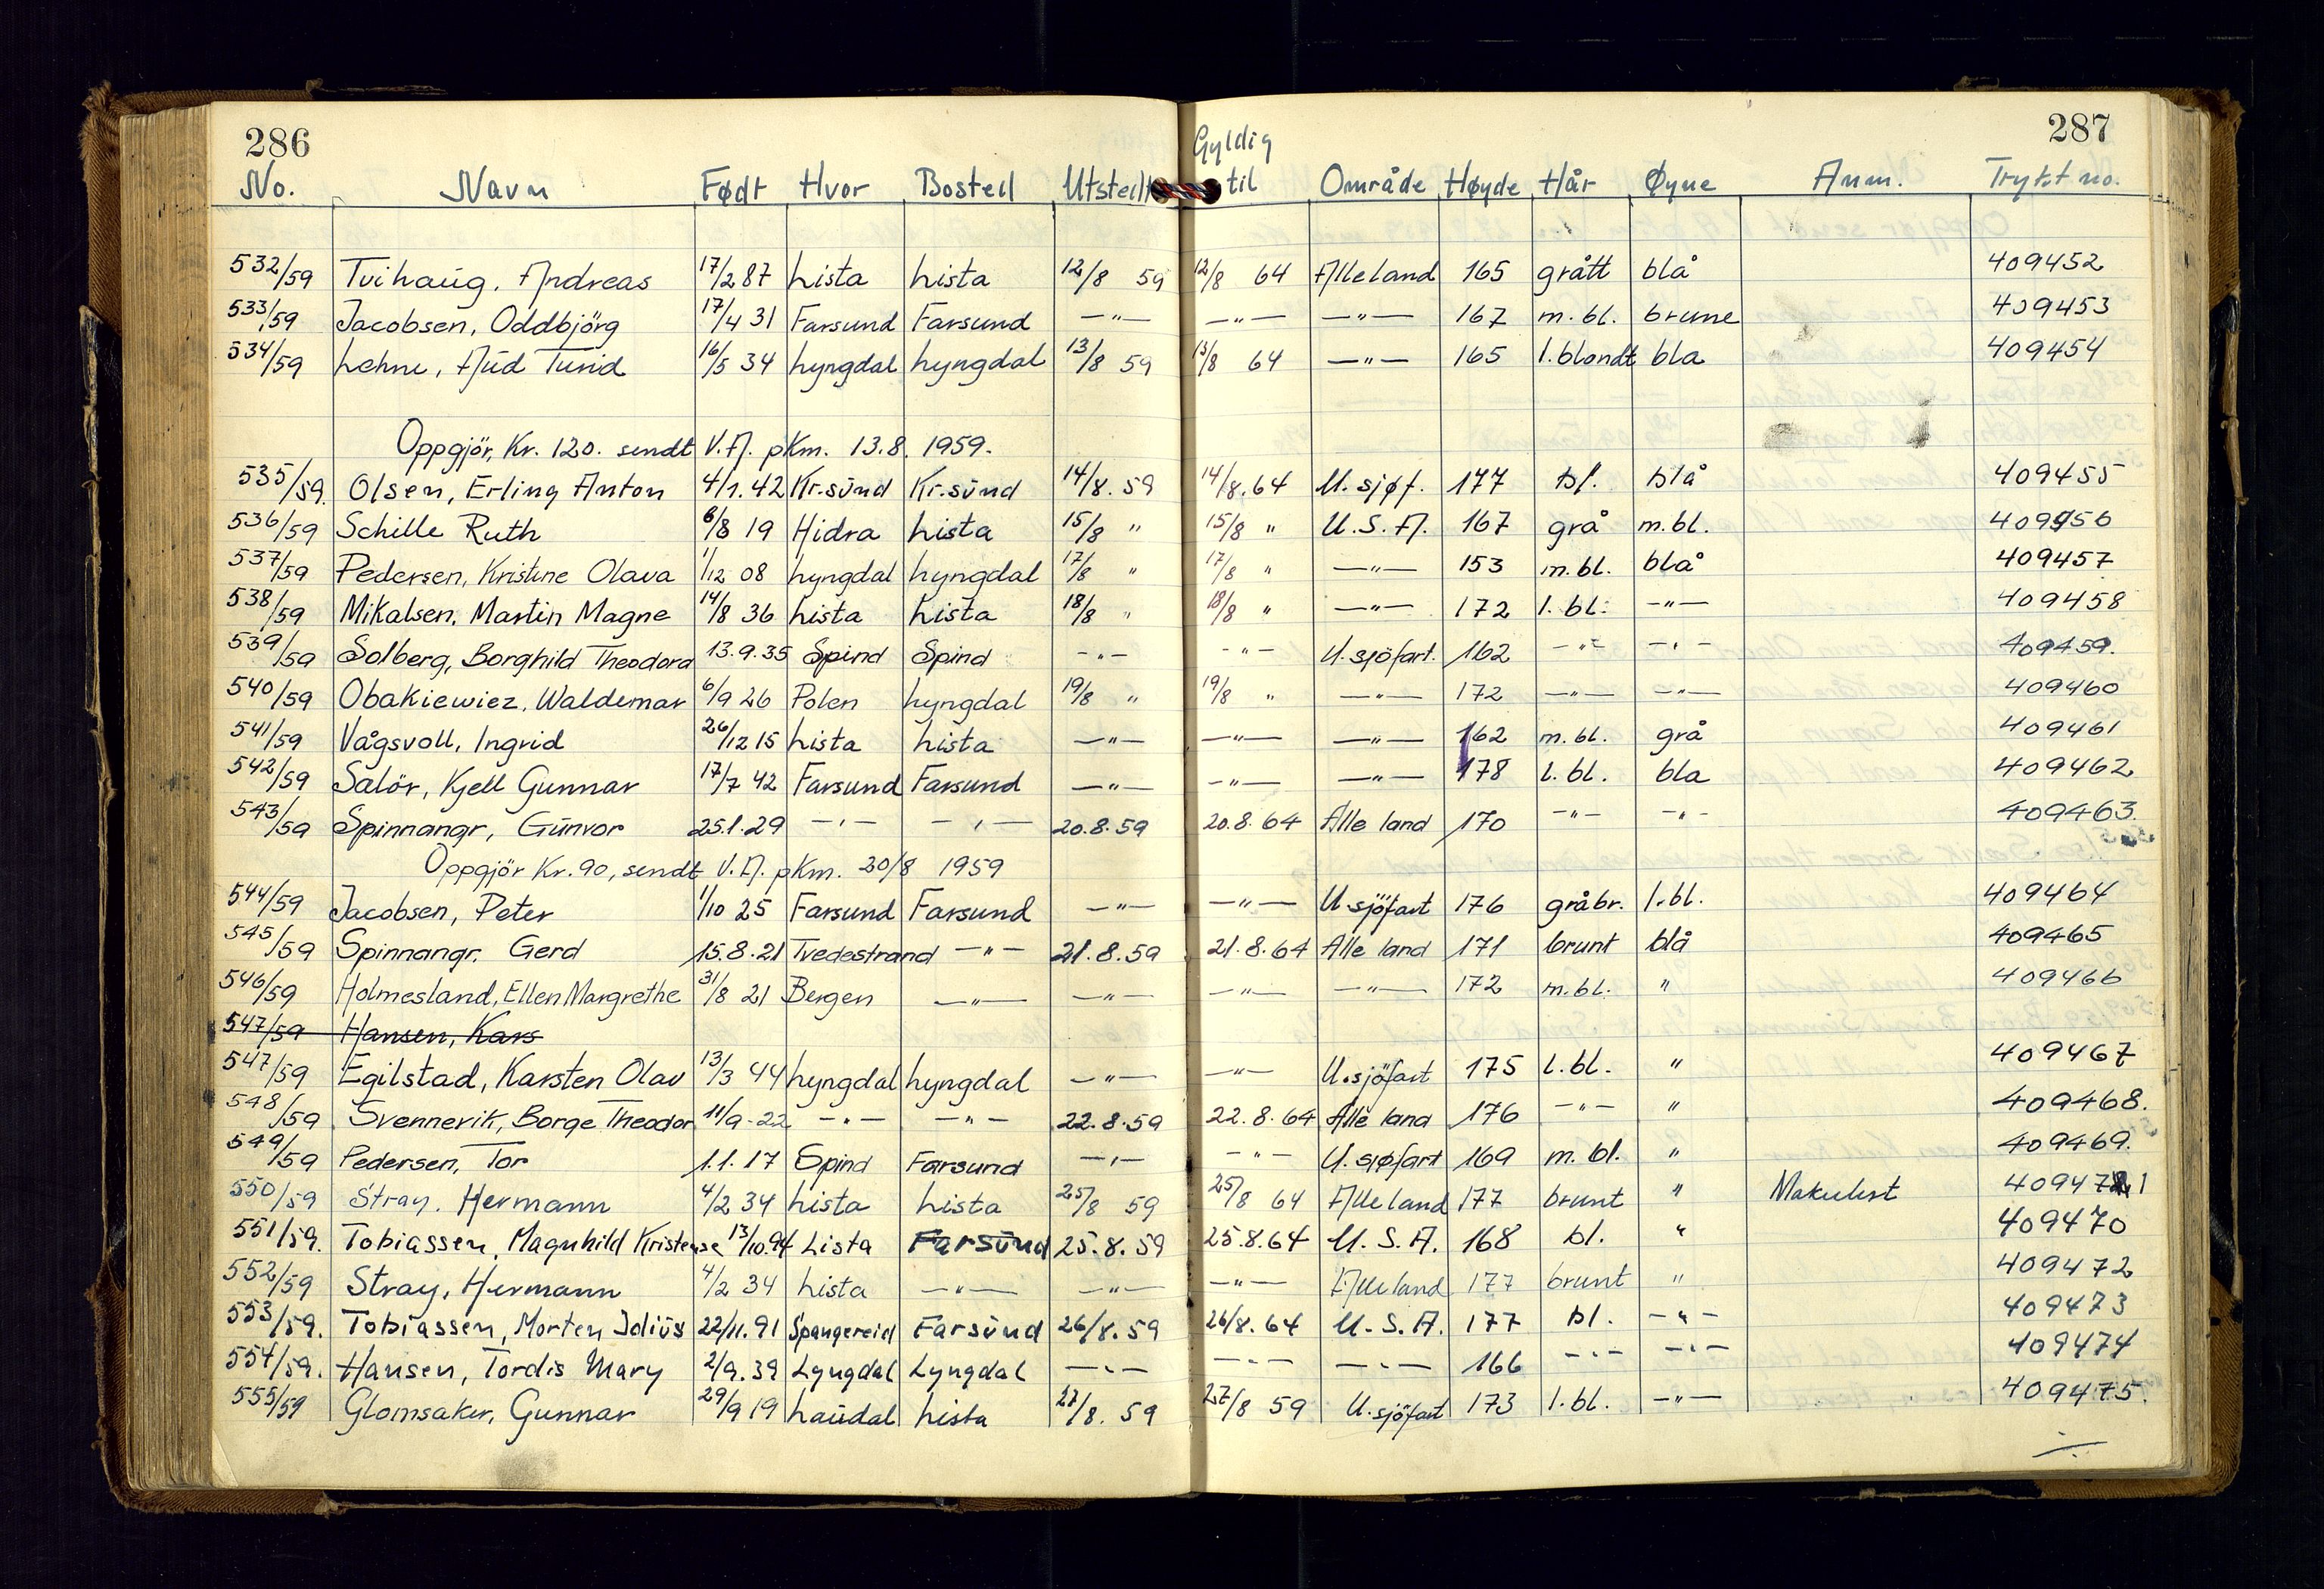 286
287
No. Navn Født Hvor Bosted Utstedt Gyldig til Område Høyde Hår Øyne Anm. Trykt no.
532/59 Tvihaug, Andreas 17/2 87 Lista Lista 12/8 59 12/8 64 Alle land 165 grått blå 409452
533/59 Jacobsen, Oddbjörg 17/4 31 Farsund Farsund —"— —"— —"— 167 m. bl. brune 409453
534/59 Lehne, Aud Turid 16/5 34 Lyngdal Lyngdal 13/8 59 13/8 64 —"— 165 l. blondt bla 409454
Oppgjör, Kr. 120. sendt V.A. pKm. 13.8. 1959.
535/59. Olsen, Erling Anton 4/1.42 Kr.sund Kr.sund 14/8.59 14/8.64 U. sjøf. 177 bl. blå 409455
536/59 Schille Ruth 6/8 19 Hidra Lista 15/8 " 15/8 " U.S.A. 167 grå m. bl. 409456
537/59 Pedersen, Kristine Olava 1/12 08 Lyngdal Lyngdal 17/8 " 17/8 " —"— 153 m. bl. blå 409457
538/59 Mikalsen, Martin Magne 14/8 36 Lista Lista 18/8 " 18/8 " —"— 172 l. bl. —"— 409458
539/59 Solberg, Borghild Theodora 13.9.35 Spind Spind —"— —"— U.sjöfart. 162 —"— —"— 409459.
540/59 Obakiewiez, Waldemar 6/9 26 Polen Lyngdal 19/8 " 19/8 " —"— 172 —"— —"— 409460
541/59 Vågsvoll, Ingrid 26/12 15 Lista Lista —"— —"— —"— 162 m. bl. grå 409461
542/59 Salör, Kjell Gunnar 17/7 42 Farsund Farsund —"— —"— —"— 178 l. bl. bla 409462
543/59 Spinnangr, Gunvor 25.1.29 —"— —"— 20.8.59 20.8.64 Alle land 170 —"— —"— 409463.
Oppgjör Kr. 90, sendt V.A. pKm. 20/8 1959
544/59 Jacobsen, Peter 1/10 25 Farsund Farsund —"— —"— U.sjöfart 176 gråbr. l. bl. 409464
545/59 Spinnangr, Gerd 15.8.21 Tvedestrand —"— 21.8.59 21.8.64 Alle land 171 brunt blå 409465
546/59 Holmesland, Ellen Margrethe 31/8 21 Bergen —"— —"— —"— —"— 172 m. bl. " 409466
547/59 Hansen, Kars
547/59 Egilstad, Karsten Olav 13/3 44 Lyngdal Lyngdal —"— —"— U.sjöfart 175 l. bl. " 409467
548/59 Svennevik, Borge Theodor 11/9-22 —"— —"— 22.8.59 22.8.64 Alle land 176 —"— " 409468.
549/59 Pedersen, Tor 1.1.17 Spind Farsund —"— —"— U.sjøfart 169 m. bl. " 409469.
550/59 Stray, Hermann 4/2 34 Lista Lista 25/8 59 25/8 64 Alle land 177 brunt " Makulert 409471
551/59. Tobiassen, Magnhild Kristense 13/10.94 Lista Farsund 25.8.59 25.8.64 U.S.A. 168 bl. " 409470
552/59 Stray, Hermann 4/2 34 Lista —"— —"— —"— Alle land 177 brunt " 409472
553/59. Tobiassen, Morten Idius 22/11.91 Spangereid Farsund 26/8.59 26/8.64 U.S.A. 177 bl. —"— 409473
554/59. Hansen, Tordis Mary 2/9.39 Lyngdal Lyngdal —"— —"— —"— 166 —"— —"— 409474
555/59 Glomsaker, Gunnar 29/9 19 Laudal Lista 27/8. 59 27/8 59 U.sjöfart 173 l. bl. —"— 409475.